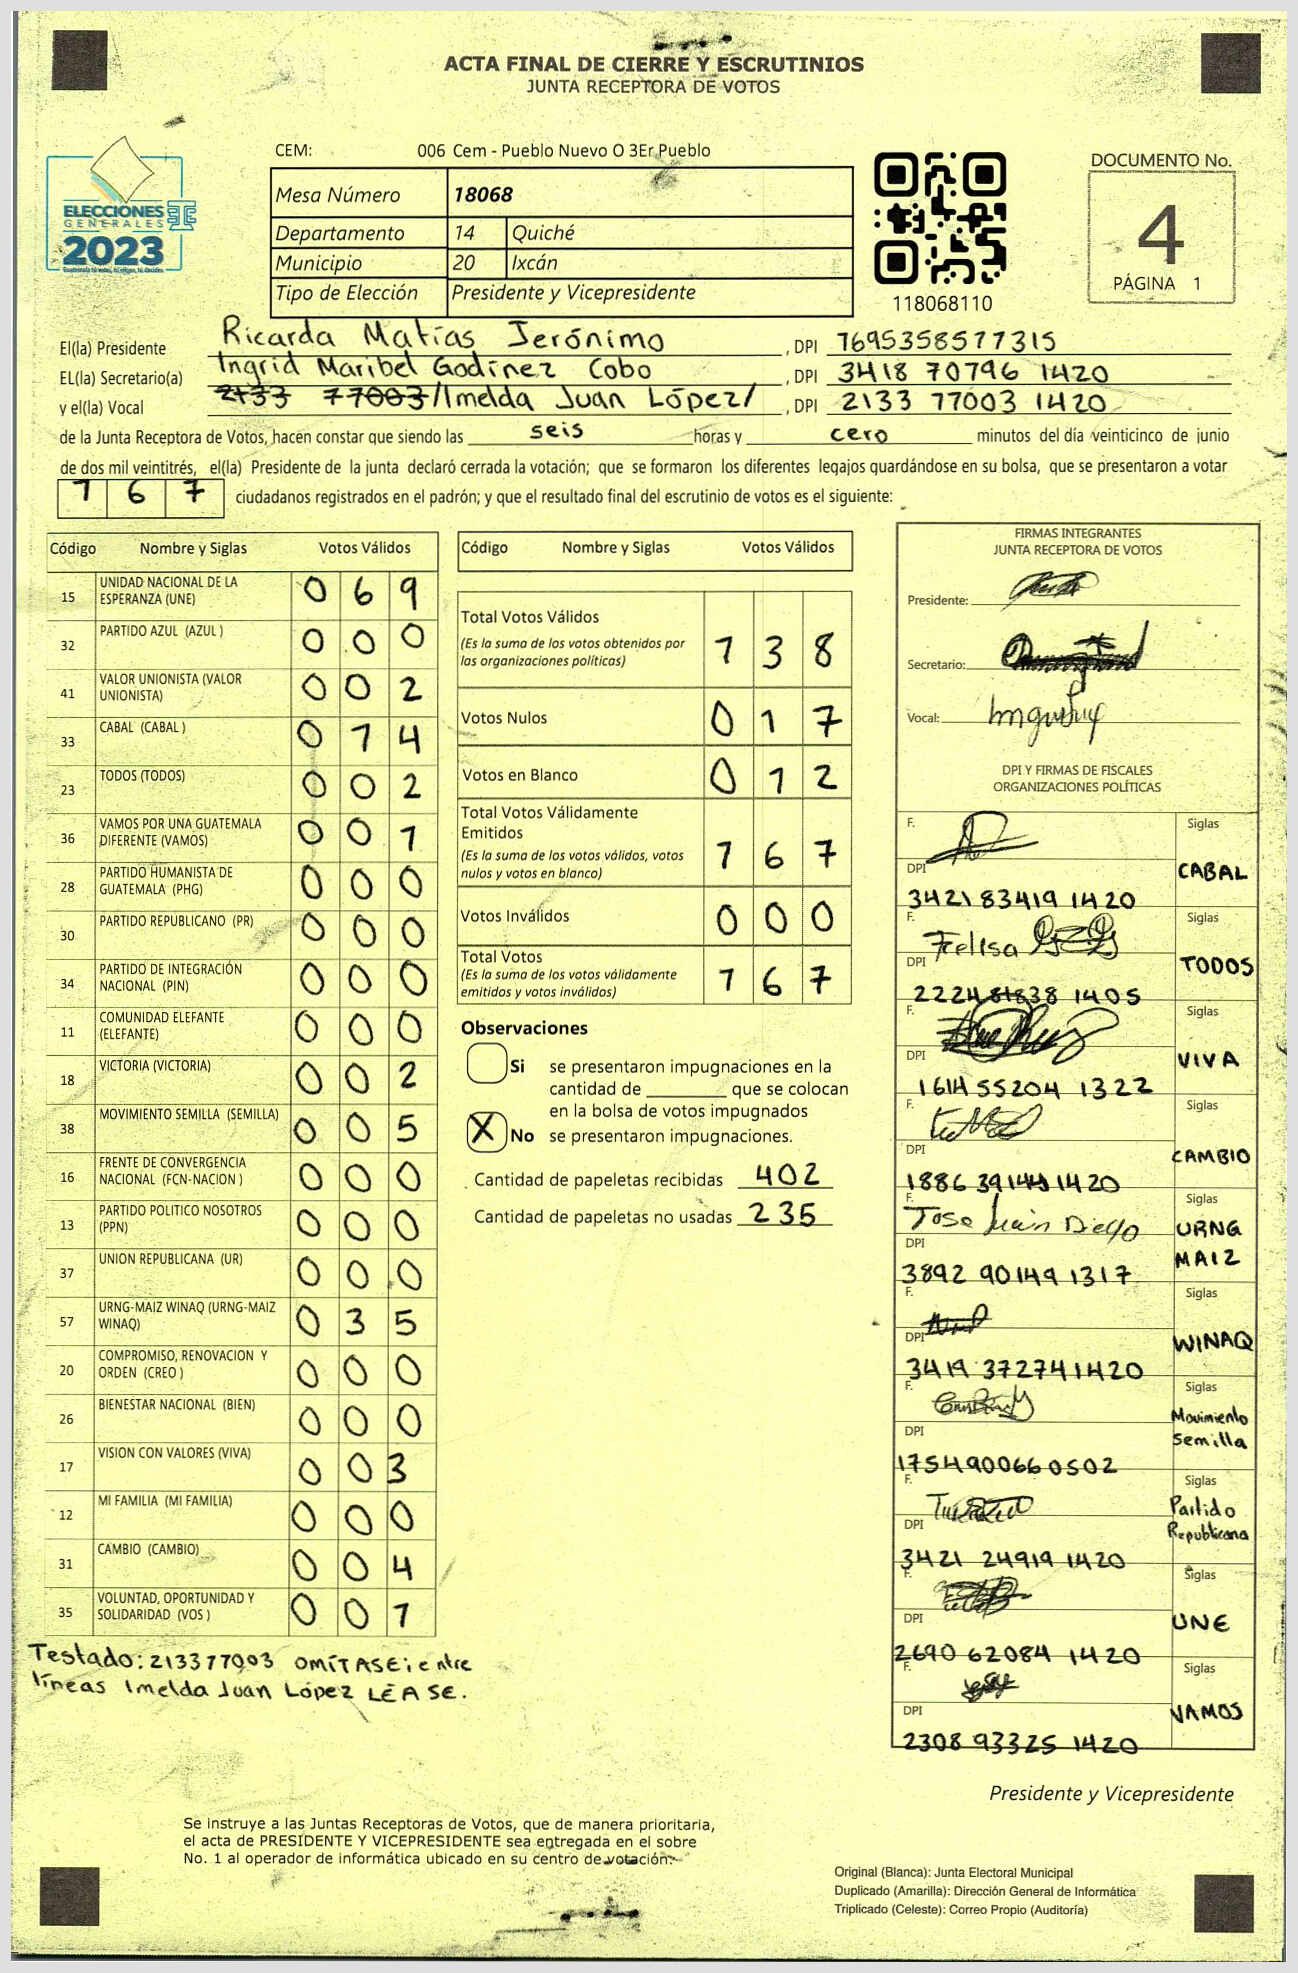 ACTA FINAL DE CIERRE Y ESCRUTINIOS
JUNTA RECEPTORA DE VOTOS
ELECCIONES
GENERALES
2023
CEM: 006 Cem - Pueblo Nuevo O 3Er Pueblo
Mesa Número 18068
Departamento 14 Quiché
Municipio 20 Ixcán
Tipo de Elección Presidente y Vicepresidente
118068110
DOCUMENTO No.
4
PÁGINA 1
El(la) Presidente Ricarda Matías Jerónimo, DPI 1695358571315
EL(la) Secretario(a) Ingrid Maribel Godínez Cobo, DPI 3418 70796 1420
y el(la) Vocal 2133 77003/Imelda Juan López/, DPI 2133 77003 1420
de la Junta Receptora de Votos, hacen constar que siendo las seis horas y cero minutos del día veinticinco de junio
de dos mil veintitrés, el(la) Presidente de la junta declaró cerrada la votación; que se formaron los diferentes legajos guardándose en su bolsa, que se presentaron a votar
1 6 7 ciudadanos registrados en el padrón; y que el resultado final del escrutinio de votos es el siguiente:
Código Nombre y Siglas Votos Válidos
15 UNIDAD NACIONAL DE LA ESPERANZA (UNE) 0 6 9
32 PARTIDO AZUL (AZUL ) 0 0 0
41 VALOR UNIONISTA (VALOR UNIONISTA) 0 0 2
33 CABAL (CABAL ) 0 1 4
23 TODOS (TODOS) 0 0 2
36 VAMOS POR UNA GUATEMALA DIFERENTE (VAMOS) 0 0 1
28 PARTIDO HUMANISTA DE GUATEMALA (PHG) 0 0 0
30 PARTIDO REPUBLICANO (PR) 0 0 0
34 PARTIDO DE INTEGRACIÓN NACIONAL (PIN) 0 0 0
11 COMUNIDAD ELEFANTE (ELEFANTE) 0 0 0
18 VICTORIA (VICTORIA) 0 0 2
38 MOVIMIENTO SEMILLA (SEMILLA) 0 0 5
16 FRENTE DE CONVERGENCIA NACIONAL (FCN-NACION ) 0 0 0
13 PARTIDO POLITICO NOSOTROS (PPN) 0 0 0
37 UNION REPUBLICANA (UR) 0 0 0
57 URNG-MAIZ WINAQ (URNG-MAIZ WINAQ) 0 3 5
20 COMPROMISO, RENOVACION Y ORDEN (CREO ) 0 0 0
26 BIENESTAR NACIONAL (BIEN) 0 0 0
17 VISION CON VALORES (VIVA) 0 0 3
12 MI FAMILIA (MI FAMILIA) 0 0 0
31 CAMBIO (CAMBIO) 0 0 4
35 VOLUNTAD, OPORTUNIDAD Y SOLIDARIDAD (VOS ) 0 0 1
Testado: 213377003 OMÍTASE; entre
líneas Imelda Juan López LÉASE.
Código Nombre y Siglas Votos Válidos
Total Votos Válidos 1 3 8
(Es la suma de los votos obtenidos por
las organizaciones políticas)
Votos Nulos 0 1 7
Votos en Blanco 0 1 2
Total Votos Válidamente
Emitidos 1 6 7
(Es la suma de los votos válidos, votos
nulos y votos en blanco)
Votos Inválidos 0 0 0
Total Votos 1 6 7
(Es la suma de los votos válidamente
emitidos y votos inválidos)
Observaciones
Si se presentaron impugnaciones en la
cantidad de ________ que se colocan
en la bolsa de votos impugnados
X No se presentaron impugnaciones.
Cantidad de papeletas recibidas 402
Cantidad de papeletas no usadas 235
FIRMAS INTEGRANTES
JUNTA RECEPTORA DE VOTOS
Presidente:
Secretario:
Vocal:
DPI Y FIRMAS DE FISCALES
ORGANIZACIONES POLÍTICAS
F. Siglas
DPI CABAL
3421 83419 1420
F. Felisa Siglas
DPI TODOS
2224 81838 1405
F. Siglas
DPI VIVA
1614 55204 1322
F. Siglas
DPI CAMBIO
1886 39144 1420
F. Jose Juan Diego Siglas
DPI URNG MAIZ
3892 90149 1317
F. Siglas
DPI WINAQ
3419 37274 1420
F. Siglas
DPI Movimiento Semilla
1754900660502
F. Siglas
DPI Partido Republicano
3421 24919 1420
F. Siglas
DPI UNE
2690 62084 1420
F. Siglas
DPI VAMOS
2308 93325 1420
Presidente y Vicepresidente
Se instruye a las Juntas Receptoras de Votos, que de manera prioritaria,
el acta de PRESIDENTE Y VICEPRESIDENTE sea entregada en el sobre
No. 1 al operador de informática ubicado en su centro de votación.
Original (Blanca): Junta Electoral Municipal
Duplicado (Amarilla): Dirección General de Informática
Triplicado (Celeste): Correo Propio (Auditoría)